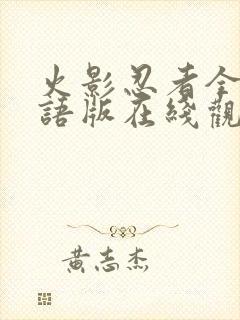 火影忍者全
語版在綫觀
黃志杰